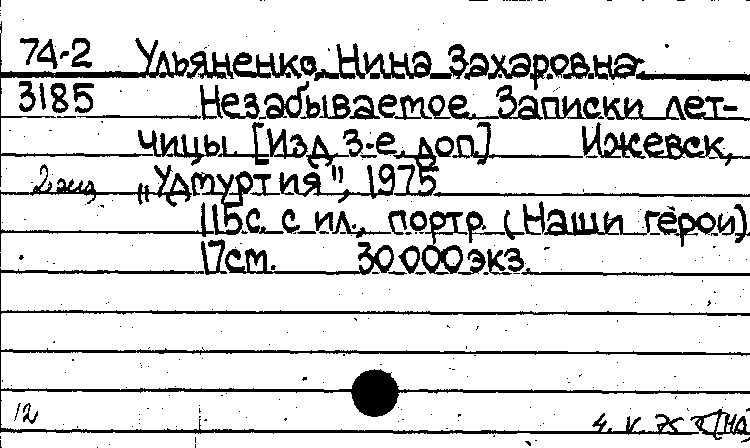 74-2 Ульяненко, Нина Захаровна.
3185 Незабываемое. Записки лет-
чицы. [Изд. 3-е, доп.] Ижевск,
2 экз „Удмуртия", 1975.
115с. с ил., портр. (Наши герои)
17см. 30 000 экз.
12 4. V. 75